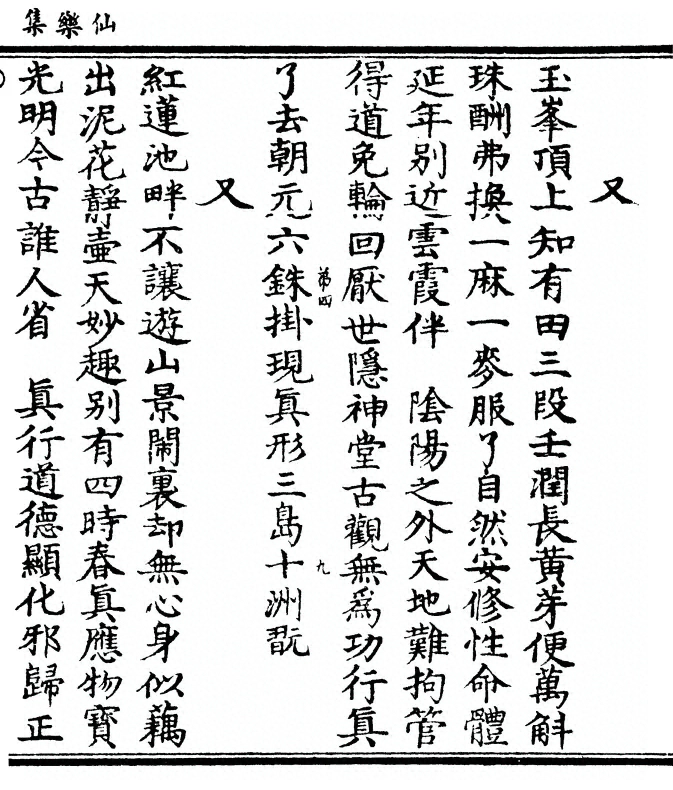 仙樂集
又
玉峯頂上知有田三段壬潤長黃芽便萬斛
珠酬弗換一麻一麥服了自然安修性命體
延年别近雲霞伴　陰陽之外天地難拘管
得道免輪回厭世隱神堂古觀無爲功行眞
第四　九
了去朝元六銖掛現眞形三島十洲翫
又
紅蓮池畔不讓遊山景鬧裏却無心身似藕
出泥花靜壺天妙趣别有四時春眞應物寳
光明今古誰人省　眞行道德顯化邪歸正